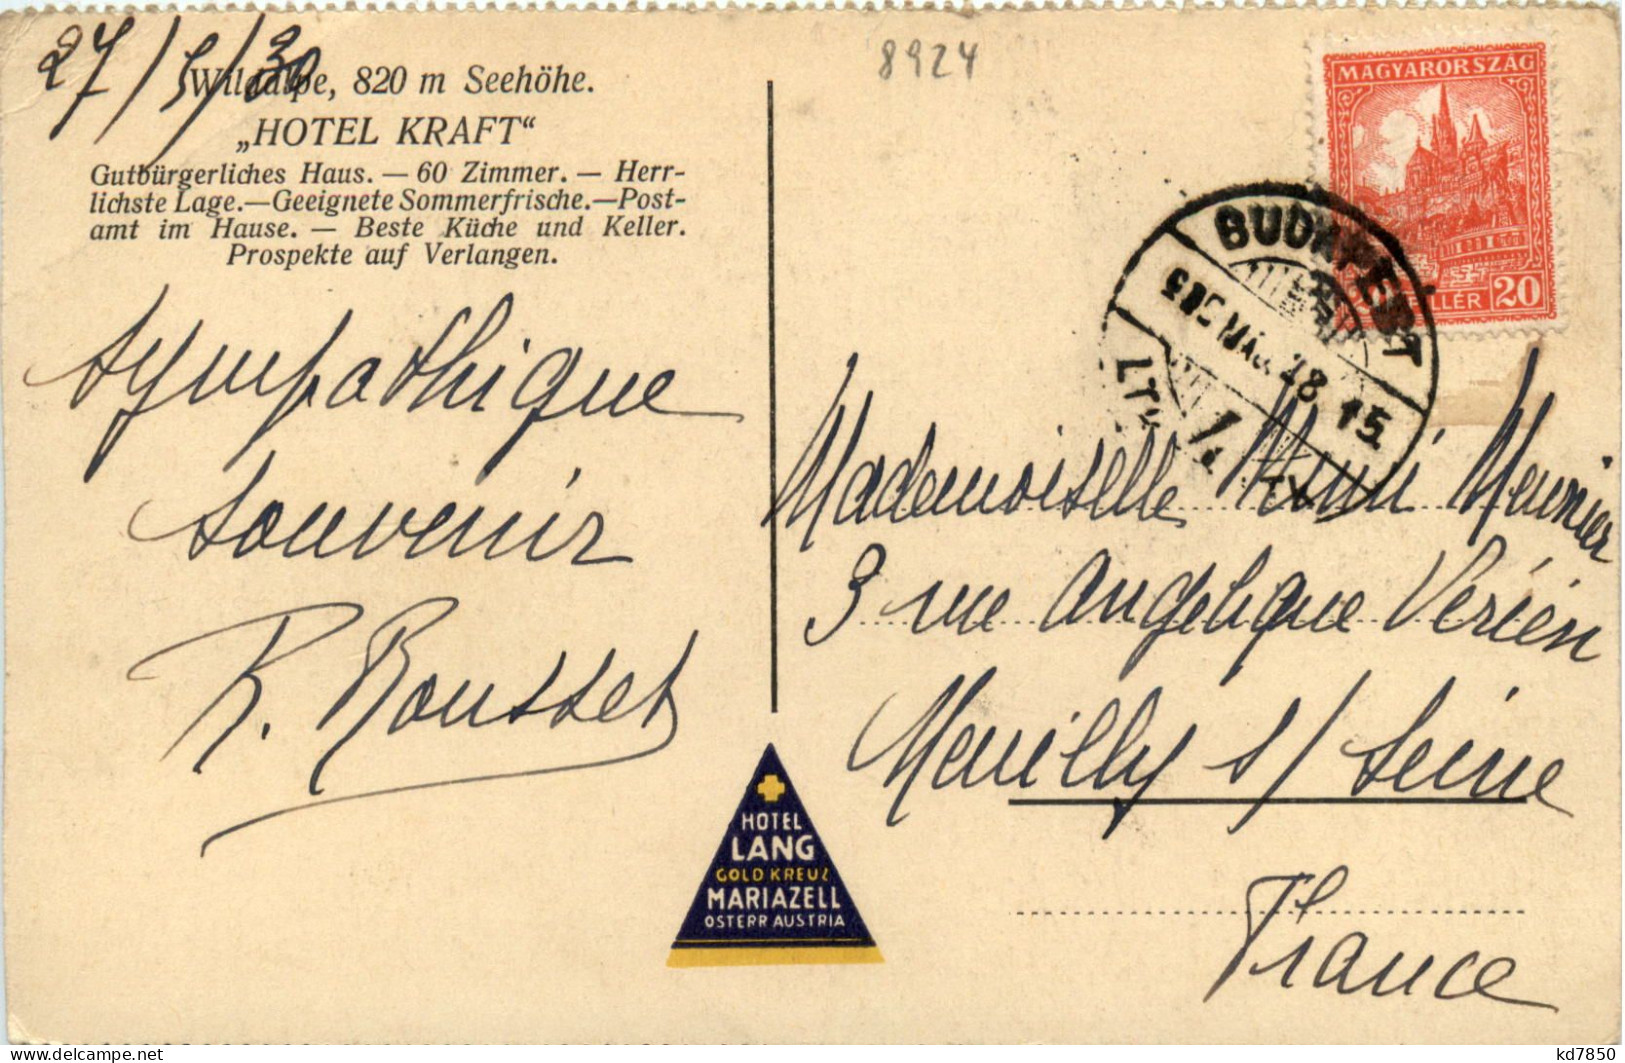 27/5/30
Wildalpe, 820 m Seehöhe.
„HOTEL KRAFT“
Gutbürgerliches Haus. — 60 Zimmer. — Herr-
lichste Lage.—Geeignete Sommerfrische.—Post-
amt im Hause. — Beste Küche und Keller.
Prospekte auf Verlangen.
sympathique
souvenir
R. Rousset
HOTEL
LANG
GOLD KREUZ
MARIAZELL
ÖSTERR AUSTRIA
8924
MAGYARORSZÁG
FILLÉR 20
BUDAPEST
MÁJ. 28 15
Mademoiselle Meunier
3 rue Angelique Verien
Neuilly s/ Seine
France
kd7850